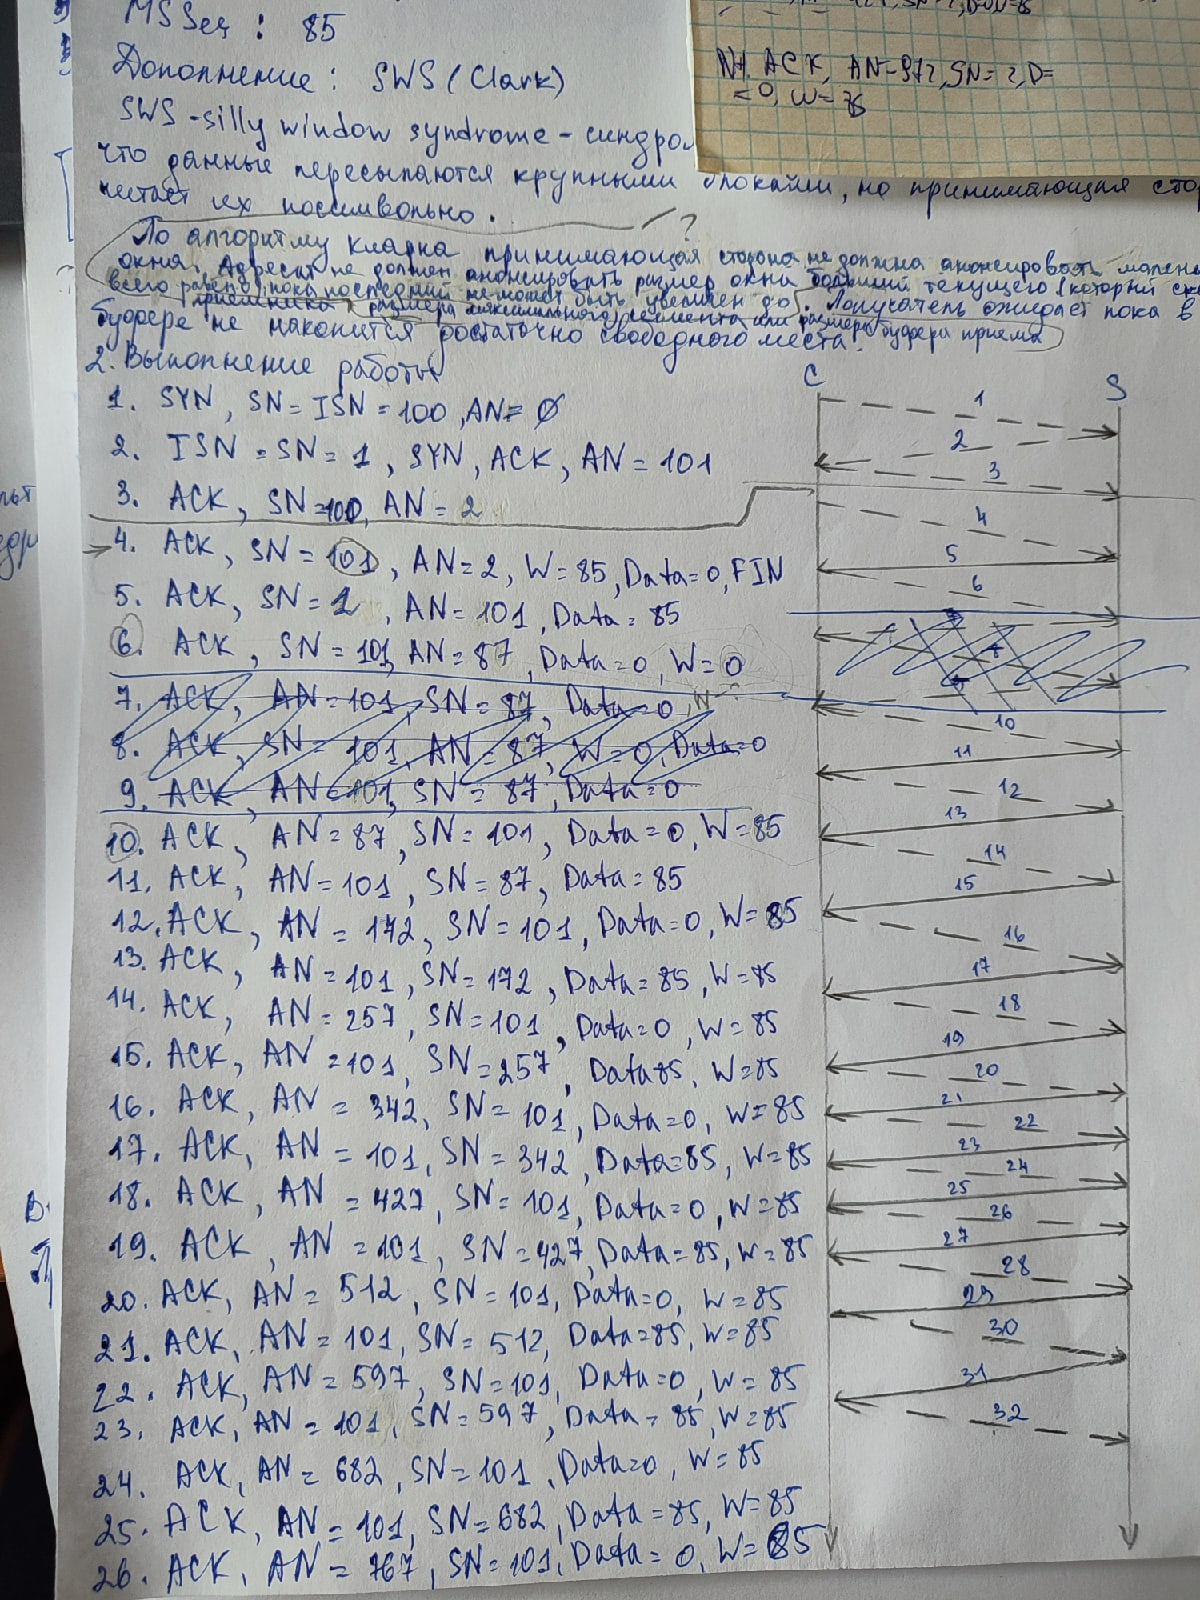 MSSeg : 85
Дополнение: SWS (Clark)
SWS - silly window syndrome - синдром
что данные пересылаются крупными блоками, но принимающая стор
читает их посимвольно.
?
По алгоритму Кларка принимающая сторона не должна анонсировать мален
окна. Адресат не должен анонсировать размер окна больший текущего (который ско
всего равен 0) пока последний не может быть увеличен до
размера максимального сегмента или размера буфера приема
. Получатель ожидает пока в
буфере не накопится достаточно свободного места.
2. Выполнение работы
1. SYN, SN = ISN = 100, AN = 0
2. ISN = SN = 1, SYN, ACK, AN = 101
3. ACK, SN = 100, AN = 2
4. ACK, SN = 101, AN = 2, W = 85, Data = 0, FIN
5. ACK, SN = 2, AN = 101, Data = 85
6. ACK, SN = 101, AN = 87, Data = 0, W = 0
7. ACK, AN = 101, SN = 87, Data = 0
8. ACK, SN = 101, AN = 87, W = 0, Data = 0
9. ACK, AN = 101, SN = 87, Data = 0
10. ACK, AN = 87, SN = 101, Data = 0, W = 85
11. ACK, AN = 101, SN = 87, Data = 85
12. ACK, AN = 172, SN = 101, Data = 0, W = 85
13. ACK, AN = 101, SN = 172, Data = 85, W = 85
14. ACK, AN = 257, SN = 101, Data = 0, W = 85
15. ACK, AN = 101, SN = 257, Data 85, W = 85
16. ACK, AN = 342, SN = 101, Data = 0, W = 85
17. ACK, AN = 101, SN = 342, Data = 85, W = 85
18. ACK, AN = 427, SN = 101, Data = 0, W = 85
19. ACK, AN = 101, SN = 427, Data = 85, W = 85
20. ACK, AN = 512, SN = 101, Data = 0, W = 85
21. ACK, AN = 101, SN = 512, Data = 85, W = 85
22. ACK, AN = 597, SN = 101, Data = 0, W = 85
23. ACK, AN = 101, SN = 597, Data = 85, W = 85
24. ACK, AN = 682, SN = 101, Data = 0, W = 85
25. ACK, AN = 101, SN = 682, Data = 85, W = 85
26. ACK, AN = 767, SN = 101, Data = 0, W = 85
ACK, AN = 972, SN = 2, D =
= 0, W = 
C S
1
2
3
4
5
6
10
11
12
13
14
15
16
17
18
19
20
21
22
23
24
25
26
27
28
29
30
31
32